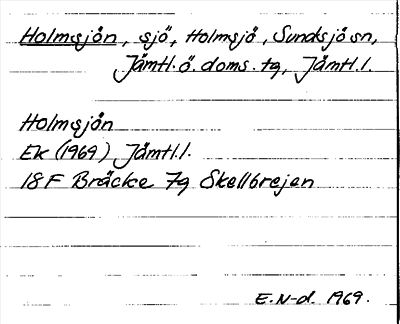 Holmsjön, sjö, Holmsjö, Sundsjö sn,
Jämtl. ö. doms. tg, Jämtl. l.
Holmsjön
Ek (1969) Jämtl. l.
18F Bräcke 7g Skellbrejen
E. N-d. 1969.